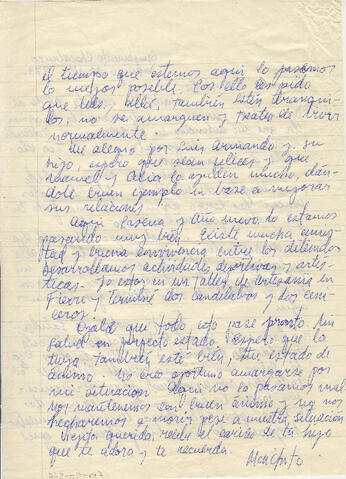 el tiempo que estemos aquí lo pasamos
lo mejor posible. Por ello les pido
que Uds, también estén tranqui-
los, no se amarguen y traten de vivir
normalmente.
Me alegro por Luis Armando y su
hijo, espero que sean felices y que
Manuel y Alicia lo ayuden mucho, dán-
dole buen ejemplo en base a mejorar
sus relaciones
Aquí Pascua y Año nuevo lo estamos
pasando muy bien. Existe mucha amis-
tad y buena convivencia entre los detenidos
Desarrollamos actividades deportivas y artís-
ticas. Yo estoy en un Taller de artesanía en
Fierro y terminé dos candelabros y dos ceni-
ceros!
Ojalá que todo esto pase pronto. Mi
salud en perfecto estado. Espero que la
tuya también esté bien, tu estado de
ánimo. No creo oportuno amargarse por
mi situación. Aquí no lo pasamos mal
nos mantenemos con buen ánimo y no nos
echaremos a morir pese a nuestra situación
Viejita querida, recibe el cariño de tu hijo
que te adora y te recuerda.